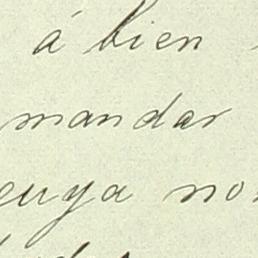 á bien
mandar
cuya no